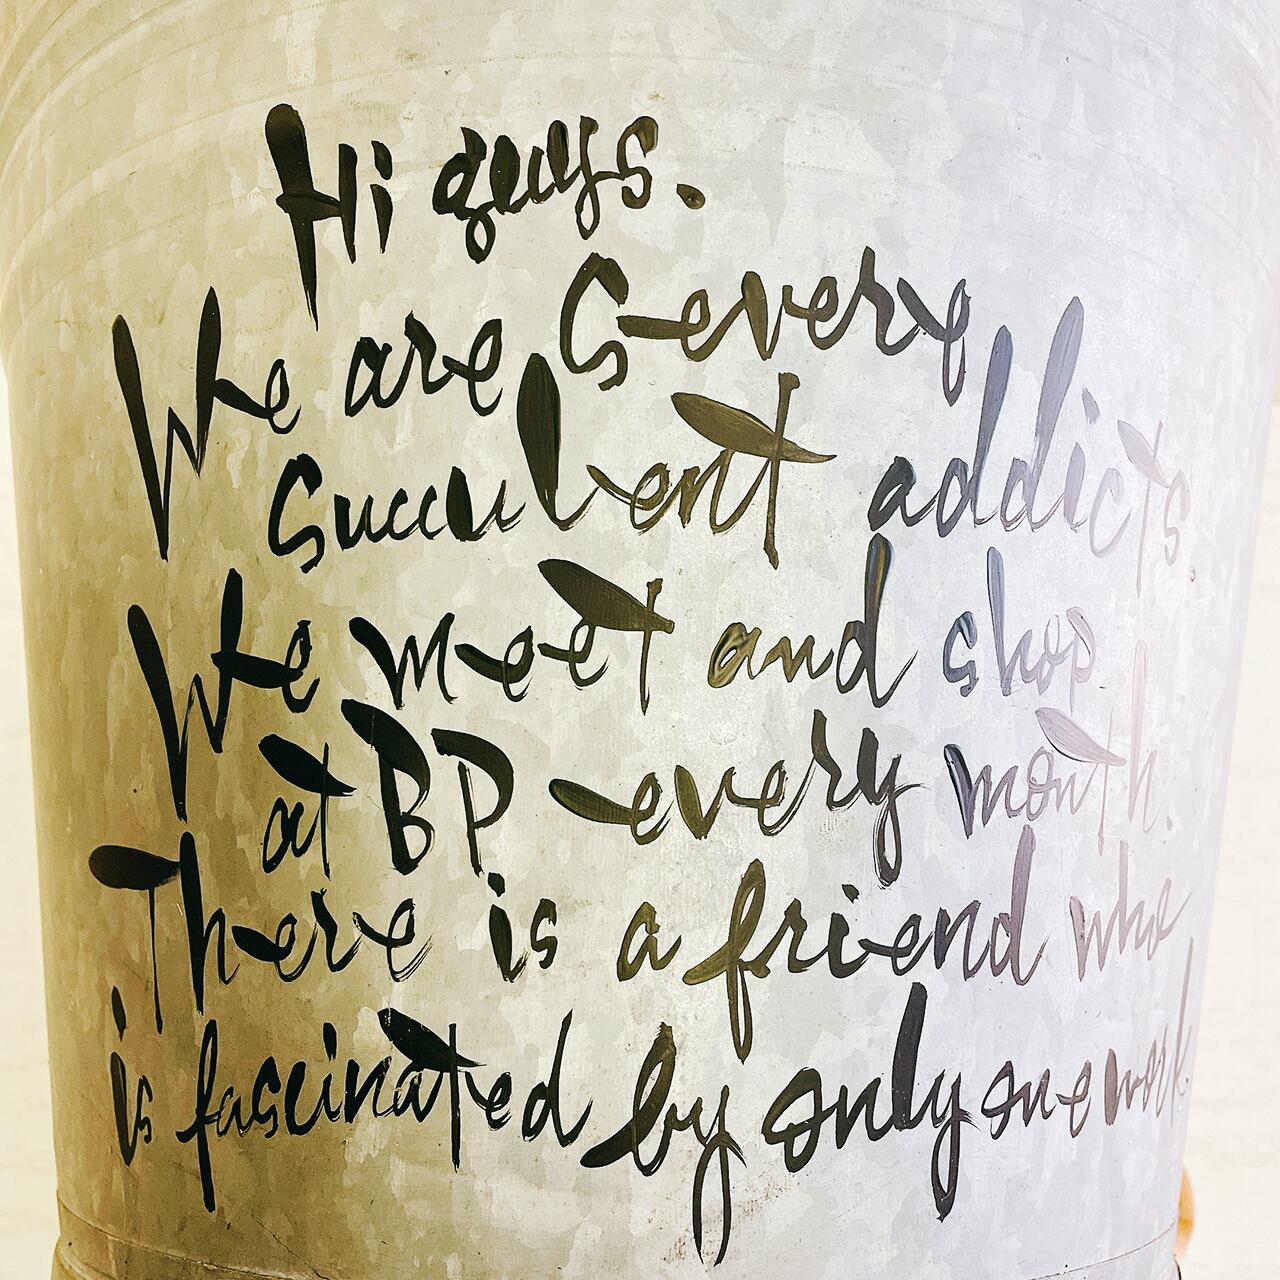 Hi guys.
We are Severe
Succulent addicts.
We meet and shop
at BP every month.
There is a friend who
is fascinated by only one work.